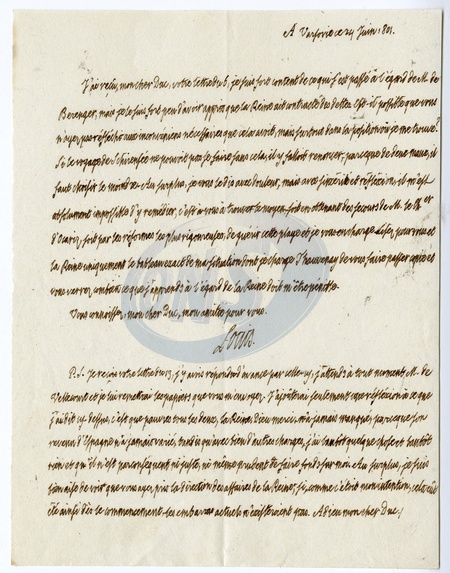 A Varsovie ce 24 Juin 1801.
J'ai reçu, mon cher Duc, votre lettre du 8, je suis fort content de ce qui s'est passé à l'égard de M. de
Beranger, mais je le suis fort peu d'avoir appris que la Reine ait contracté des dettes. Est-il possible que vous
n'ayez pas réfléchi aux inconvénients nécessaires que cela auroit, mais surtout dans la position où je me trouve?
Si le voyage de ne pouvoit pas se faire sans cela, il y falloit renoncer, parce que de deux maux, il
faut choisir le moindre. Au surplus, je vous le dis avec douleur, mais avec sincérité et réflexion, il m'est
absolument impossible d'y remédier, c'est à vous à trouver le moyen, soit en obtenant des secours de M. le
d' soit par les réformes les plus rigoureuses, de guérir cette plage et je vous en charge. Lisez, pour vous et
la Reine uniquement, le tableau exact de ma situation dont je charge Thauvenay de vous faire passer copie et
vous verrez combien ce que j'apprends à l'égard de la Reine doit m'être pénible.
Vous connoissez, mon cher Duc, mon amitié pour vous.
Louis.
P.S. Je reçois votre lettre du 13, j'y avois répondu d'avance par celle-ci, j'attends à tout moment M. de
et je lui remettrai les papiers que vous m'envoyez. J'ajouterai seulement une réflexion à ce que
j'ai dit ci dessus, c'est que pauvres tous les deux, la Reine, Dieu merci, n'a jamais manqué, parce que son
revenu d'Espagne n'a jamais varié, tandis qu'avec bien d'autres charges, j'ai tantôt quelque chose et tantôt
rien et qu'il n'est par conséquent ni juste, ni même prudent de faire fonds sur moi. Au surplus, je suis
bien aise de voir que vous ayez pris la direction des affaires de la Reine; si, comme c'étoit mon intention, cela eût
été ainsi dès le commencement, ces embarras actuels n'existeroient pas. Adieu mon cher Duc.
CONST